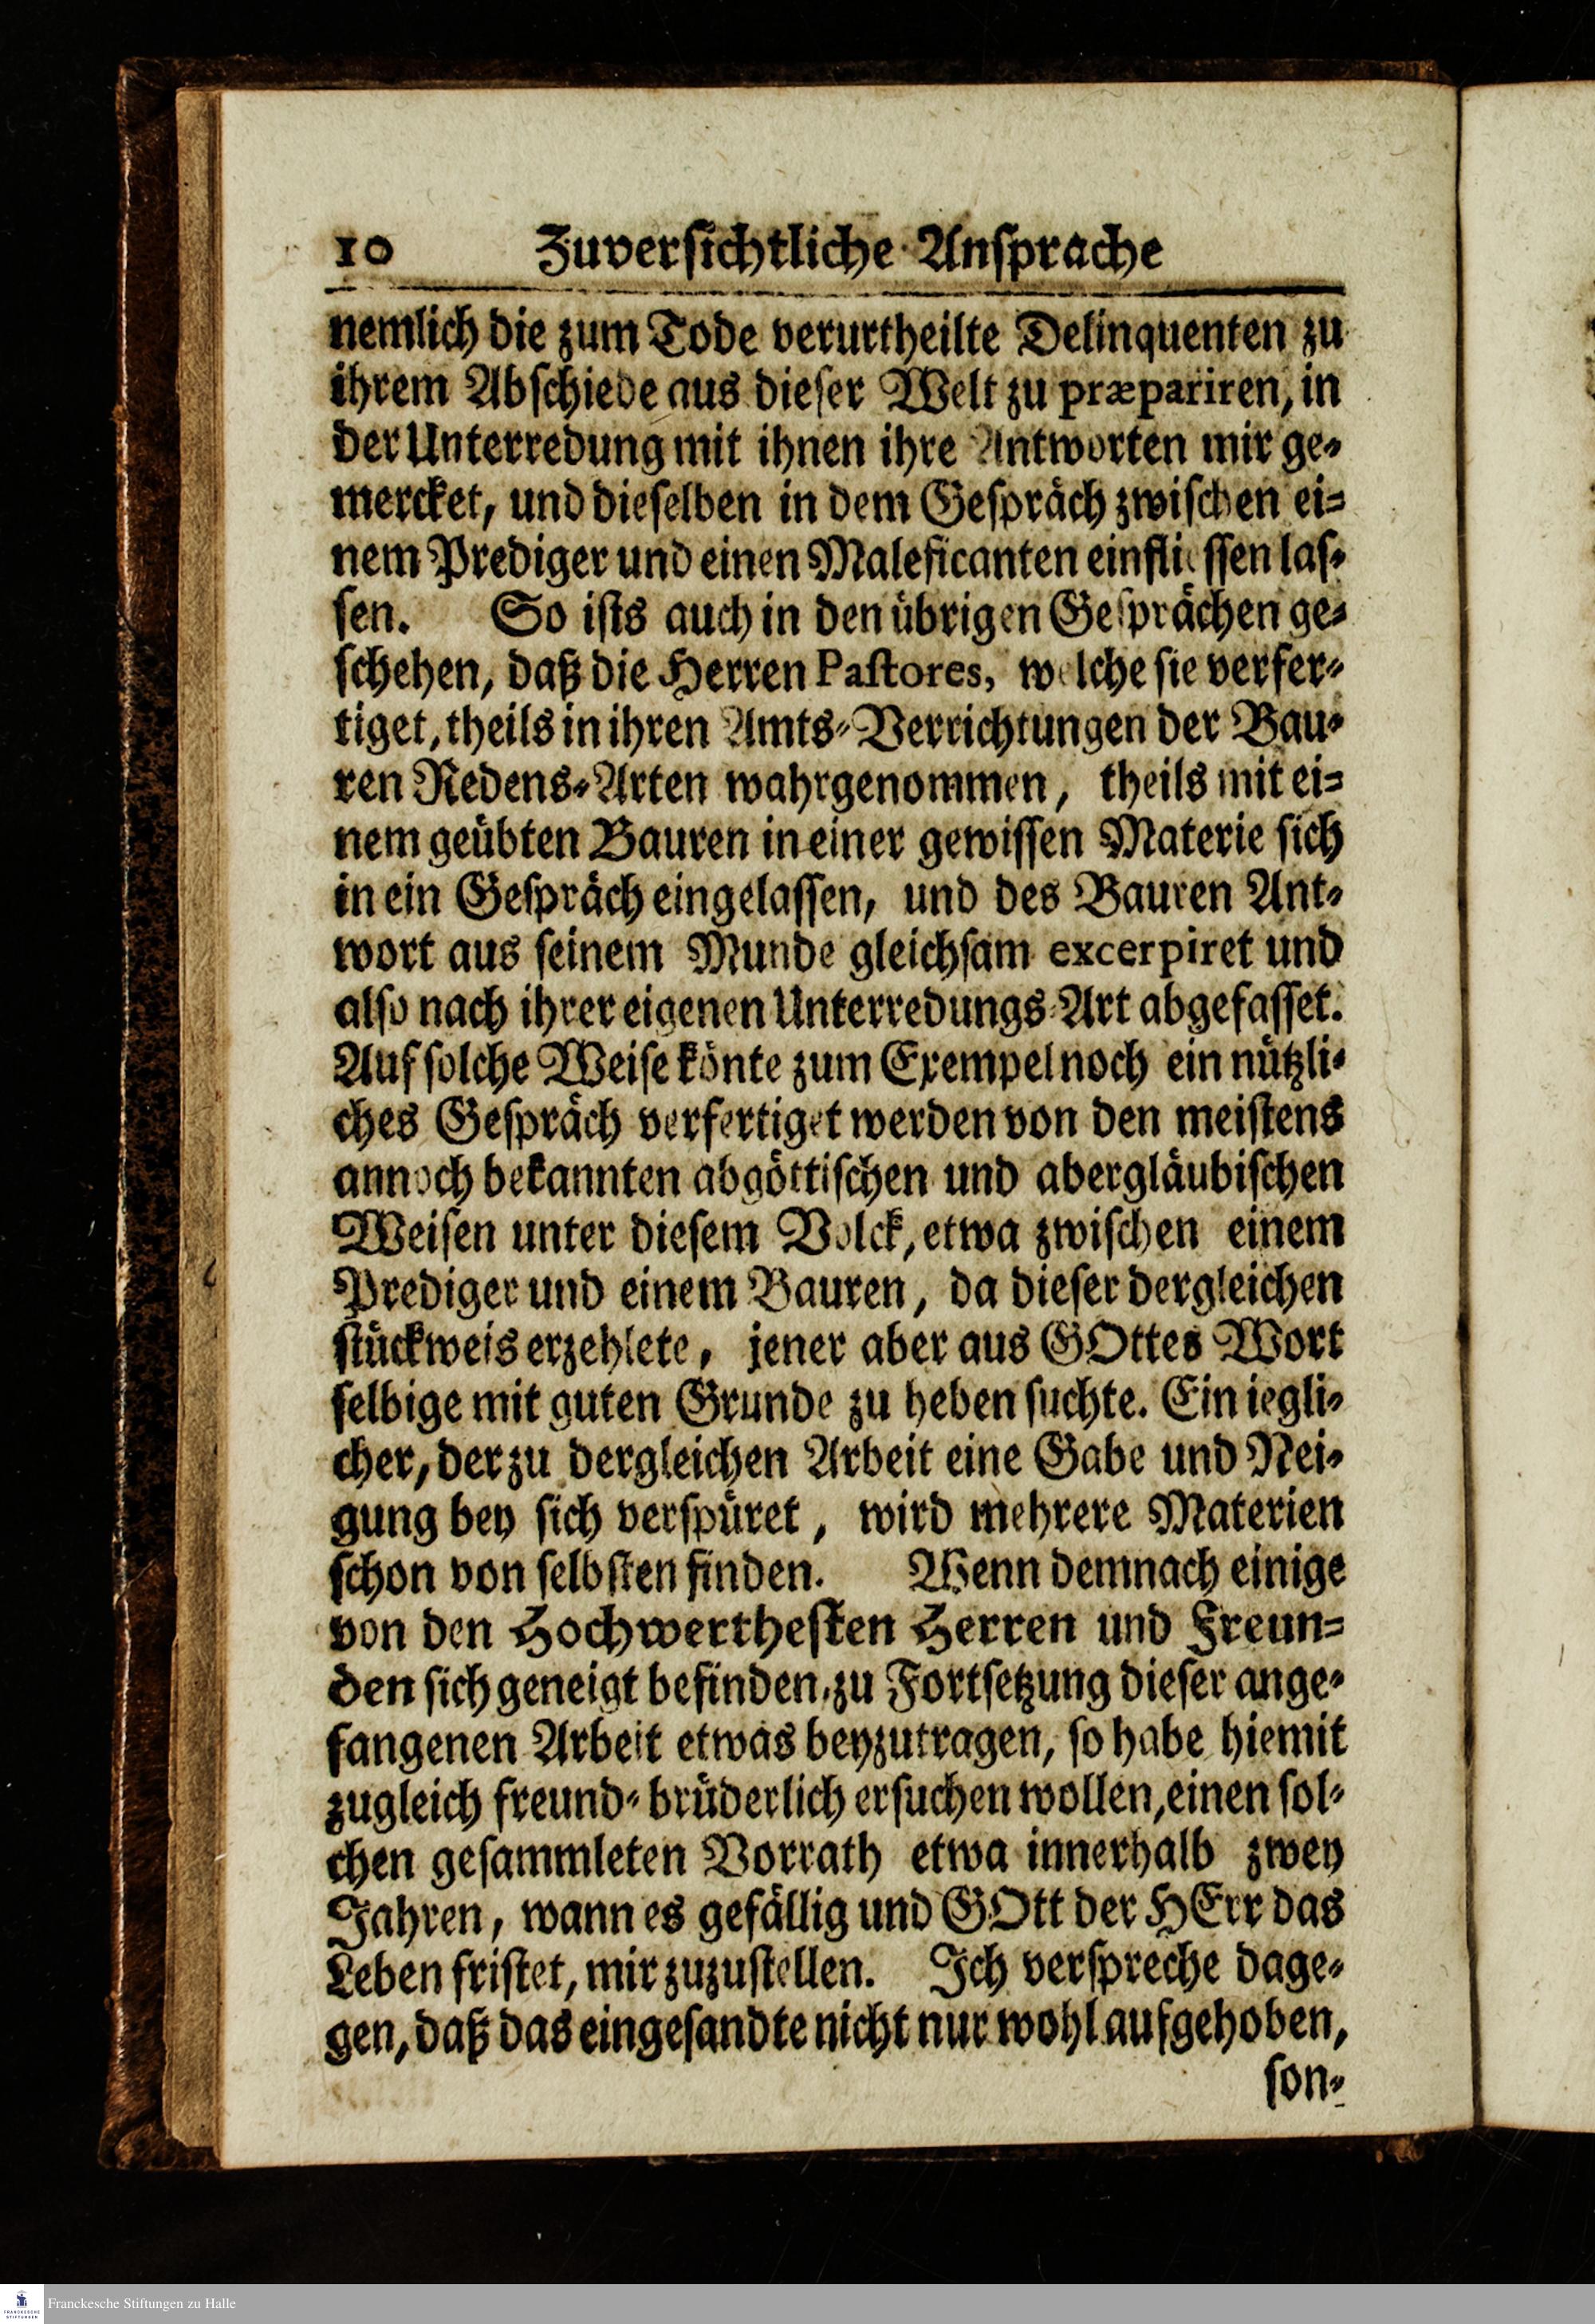 10 Zuverſichtliche Anſprache
nemlich die zum Tode verurtheilte Delinquenten zu
ihrem Abſchiede aus dieſer Welt zu præpariren, in
der Unterredung mit ihnen ihre Antworten mir ge-
mercket, und dieſelben in dem Geſpräch zwiſchen ei-
nem Prediger und einen Maleficanten einflieſſen laſ-
ſen. So iſts auch in den übrigen Geſprächen ge-
ſchehen, daß die Herren Paſtores, welche ſie verfer-
tiget, theils in ihren Amts-Verrichtungen der Bau-
ren Redens-Arten wahrgenommen, theils mit ei-
nem geübten Bauren in einer gewiſſen Materie ſich
in ein Geſpräch eingelaſſen, und des Bauren Ant-
wort aus ſeinem Munde gleichſam excerpiret und
alſo nach ihrer eigenen Unterredungs-Art abgefaſſet.
Auf ſolche Weiſe könte zum Exempel noch ein nützli-
ches Geſpräch verfertiget werden von den meiſtens
annoch bekannten abgöttiſchen und abergläubiſchen
Weiſen unter dieſem Volck, etwa zwiſchen einem
Prediger und einem Bauren, da dieſer dergleichen
ſtückweis erzehlete, jener aber aus GOttes Wort
ſelbige mit guten Grunde zu heben ſuchte. Ein iegli-
cher, der zu dergleichen Arbeit eine Gabe und Nei-
gung bey ſich verſpüret, wird mehrere Materien
ſchon von ſelbſten finden. Wenn demnach einige
von den Hochwertheſten Herren und Freun-
den ſich geneigt befinden, zu Fortſetzung dieſer ange-
fangenen Arbeit etwas beyzutragen, ſo habe hiemit
zugleich freund-brüderlich erſuchen wollen, einen ſol-
chen geſammleten Vorrath etwa innerhalb zwey
Jahren, wann es gefällig und GOtt der HErr das
Leben friſtet, mir zuzuſtellen. Ich verſpreche dage-
gen, daß das eingeſandte nicht nur wohl aufgehoben,
ſon-
Franckesche Stiftungen zu Halle